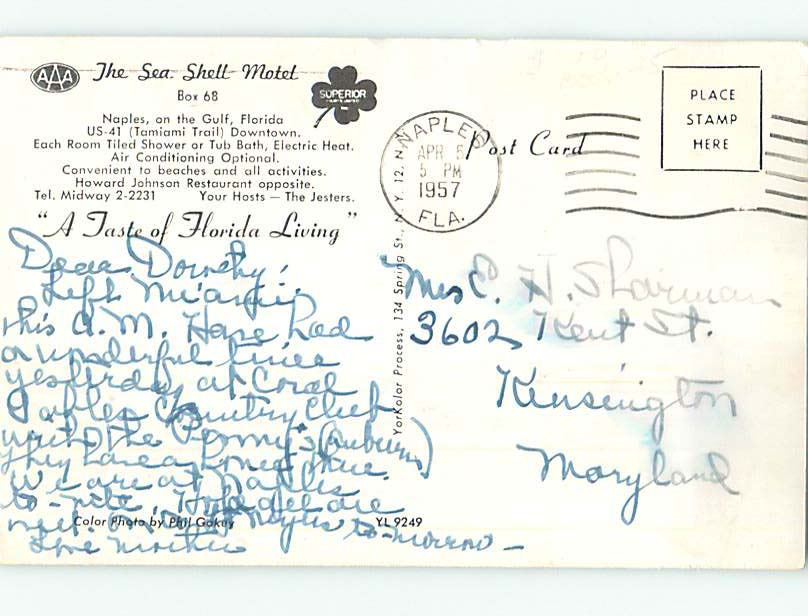 AAA
The Sea Shell Motel
SUPERIOR
Box 68
Naples, on the Gulf, Florida
US-41 (Tamiami Trail) Downtown.
Each Room Tiled Shower or Tub Bath, Electric Heat.
Air Conditioning Optional.
Convenient to beaches and all activities.
Howard Johnson Restaurant opposite.
Tel. Midway 2-2231 Your Hosts — The Jesters.
"A Taste of Florida Living"
Dear Dorothy,
Left Miami
this A.M. Have had
a wonderful time
yesterday at Coral
Gables Country Club
with the (Auburn)
They have a home
We are at Naples
to-nite. Hope all are
well. Ft. Myers to-morrow —
Love Mother
Color Photo by Phil Gokey YL 9249
YorKolor Process, 134 Spring St., N. Y. 12, N.
NAPLES
APR 5
5 PM
1957
FLA.
Post Card
PLACE
STAMP
HERE
Mrs C. H. Sharman
3602 Kent St.
Kensington
Maryland